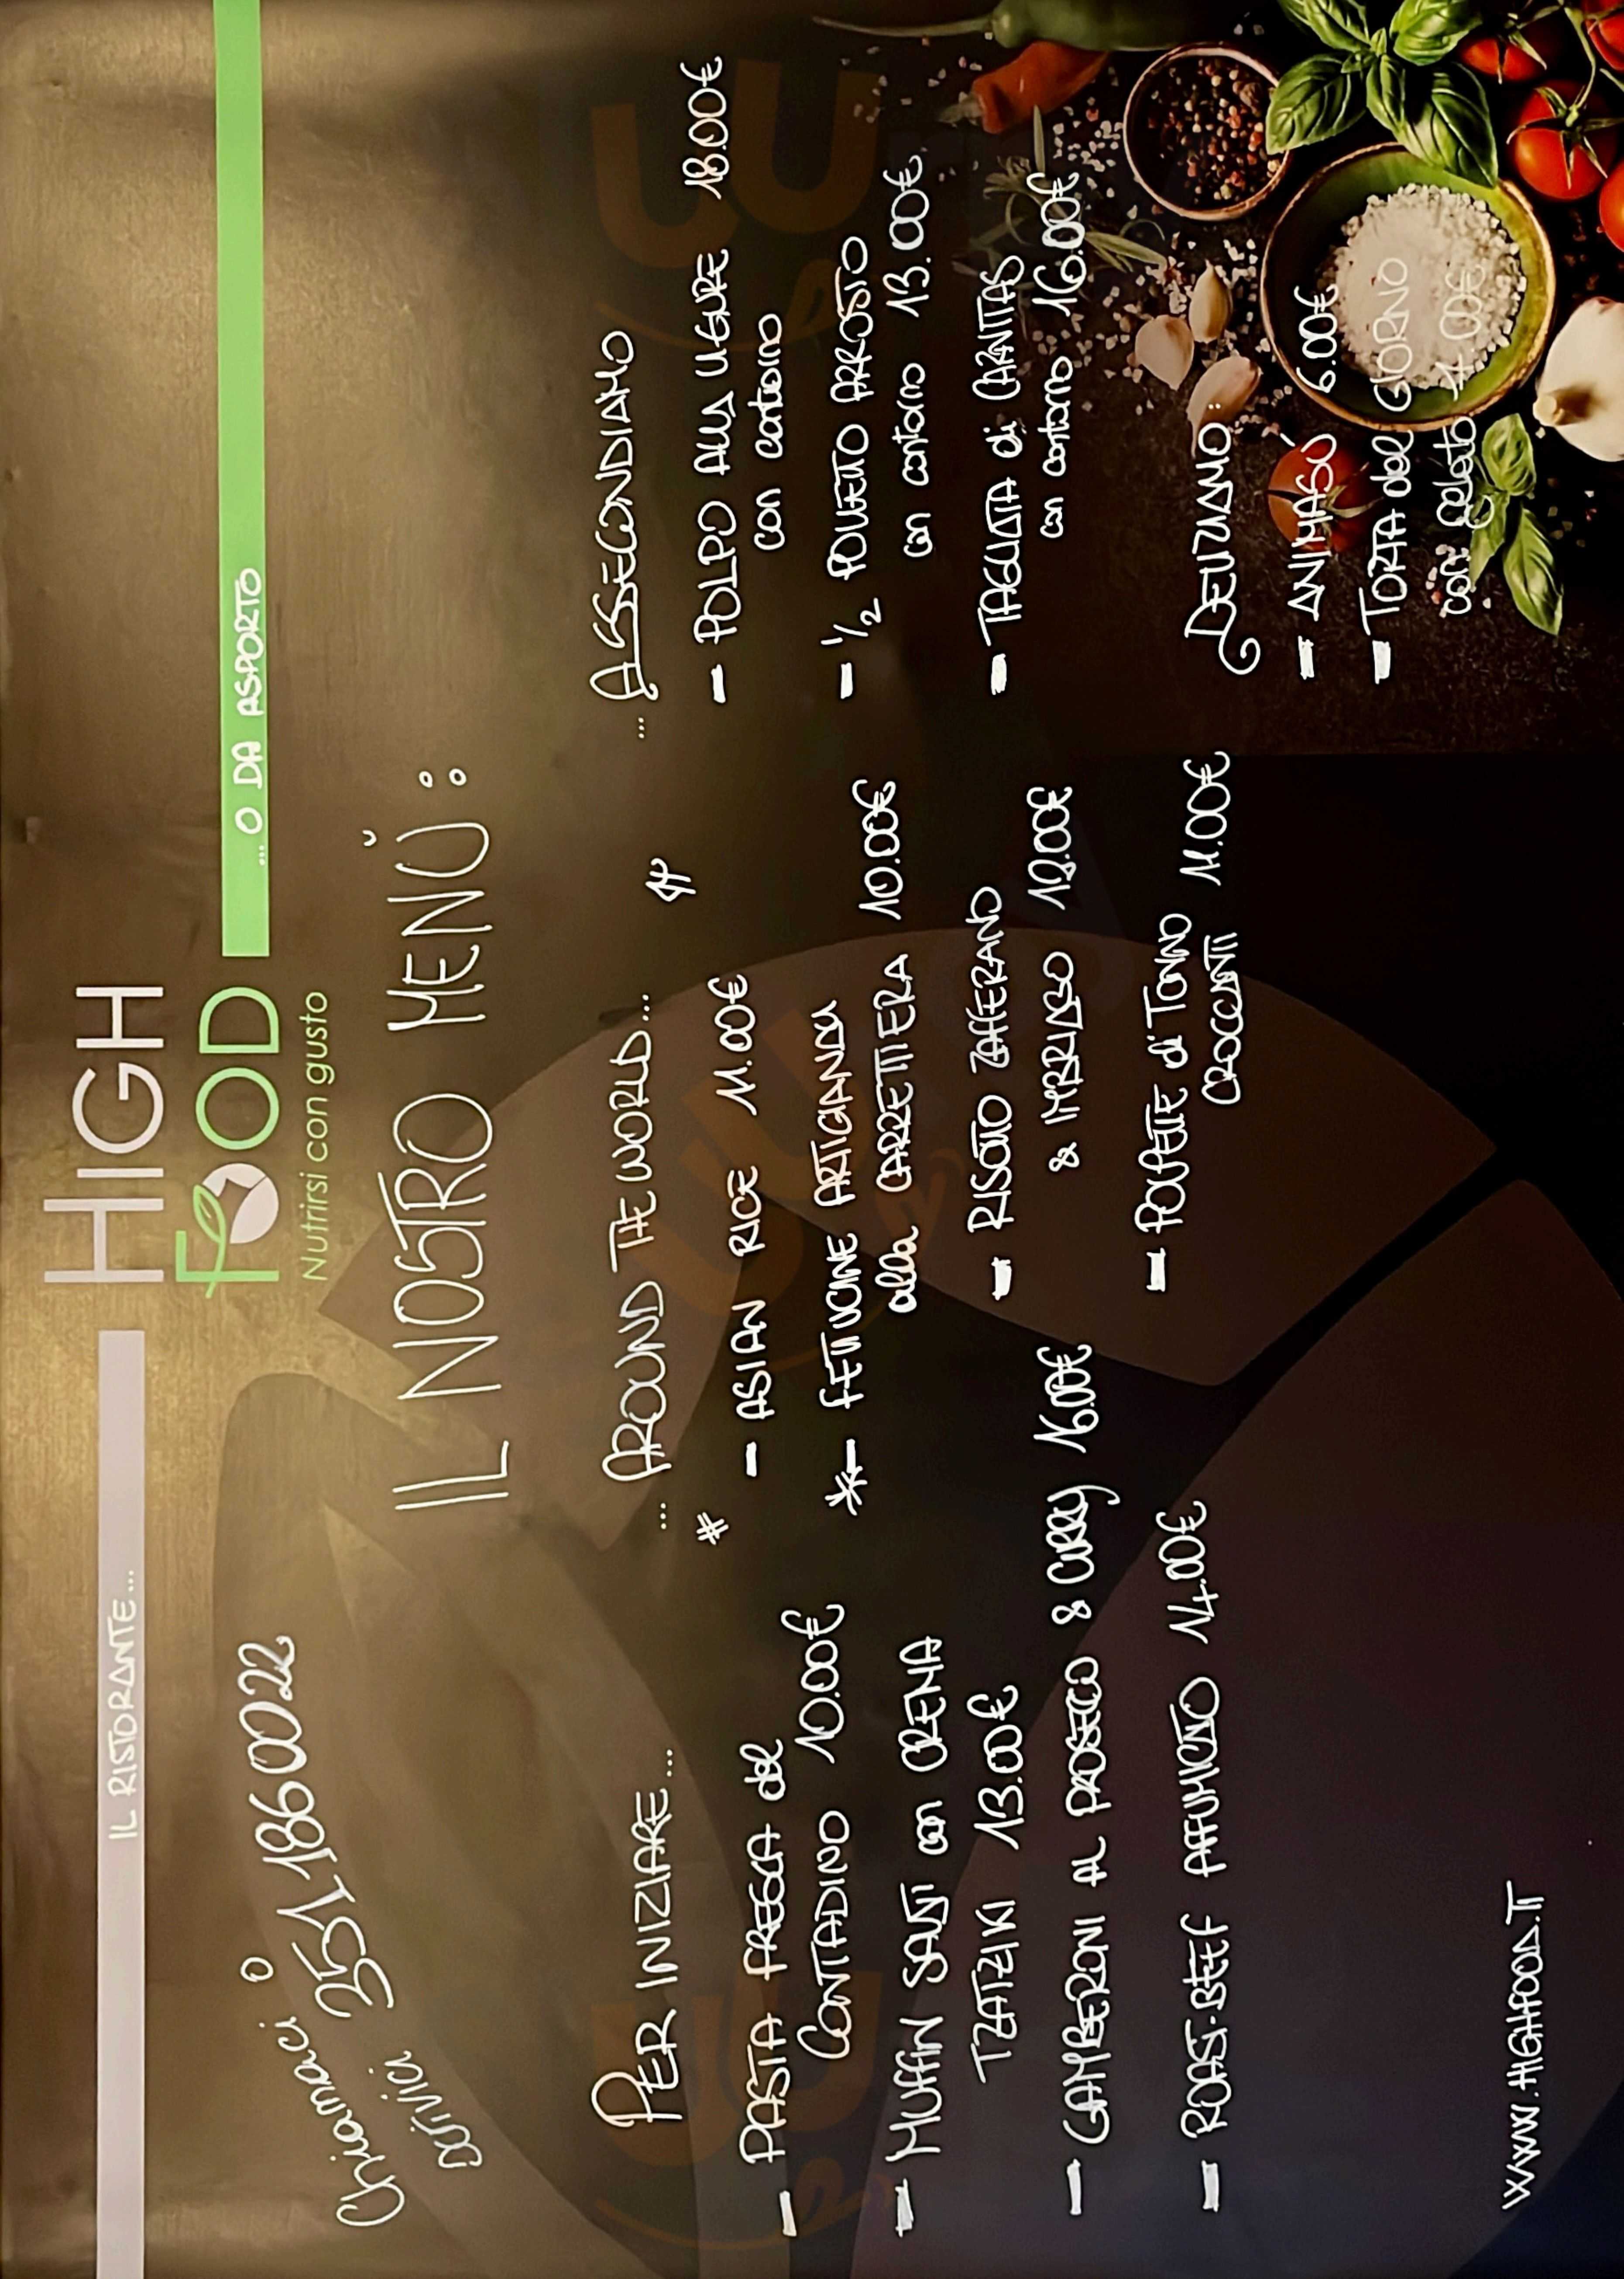 IL RISTORANTE...
HIGH
FOOD
Nutrirsi con gusto
... O DA ASPORTO
Chiamaci o
scrivici 351.1860022
IL NOSTRO MENÙ:
PER INIZIARE...
- PASTA FRESCA del
CONTADINO 10.00€
- MUFFIN SALATI con CREMA
TZATZIKI 13.00€
- GAMBERONI AL PROSECCO & CURRY 16.00€
- ROAST-BEEF AFFUMICATO 14.00€
... AROUND THE WORLD...
- ASIAN RICE 11.00€
*- FETTUCCINE ARTIGIANALI
alla CARRETTIERA 10.00€
- RISOTTO ZAFFERANO
& IMBRIAGO
- POLPETTE di TONNO 11.00€
CROCCANTI
... ASSECONDIAMO
- POLPO ALLA LIGURE 18.00€
con contorno
- 1/2 POLLETTO ARROSTO
con contorno 13.00€
- TAGLIATA di
con contorno 16.00€
DELIZIAMO:
- ANIMASÙ 6.00€
- TORTA del GIORNO
con gelato
WWW.HIGHFOOD.IT